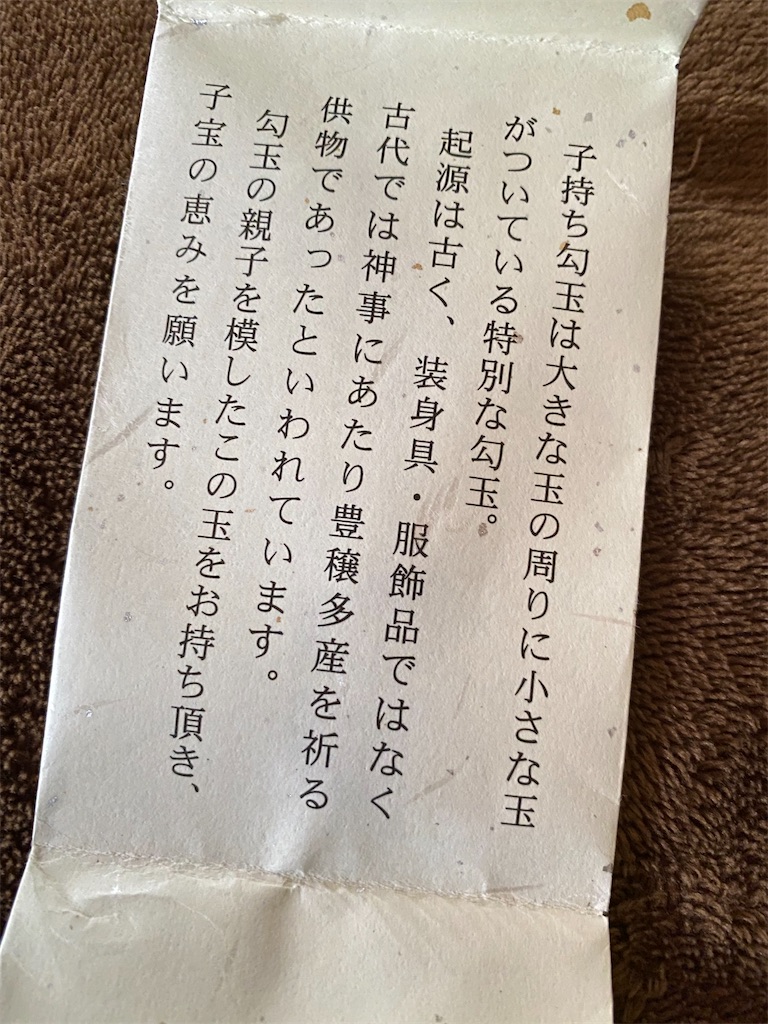 子持ち勾玉は大きな玉の周りに小さな玉
がついている特別な勾玉。
起源は古く、装身具・服飾品ではなく
古代では神事にあたり豊穣多産を祈る
供物であったといわれています。
勾玉の親子を模したこの玉をお持ち頂き、
子宝の恵みを願います。